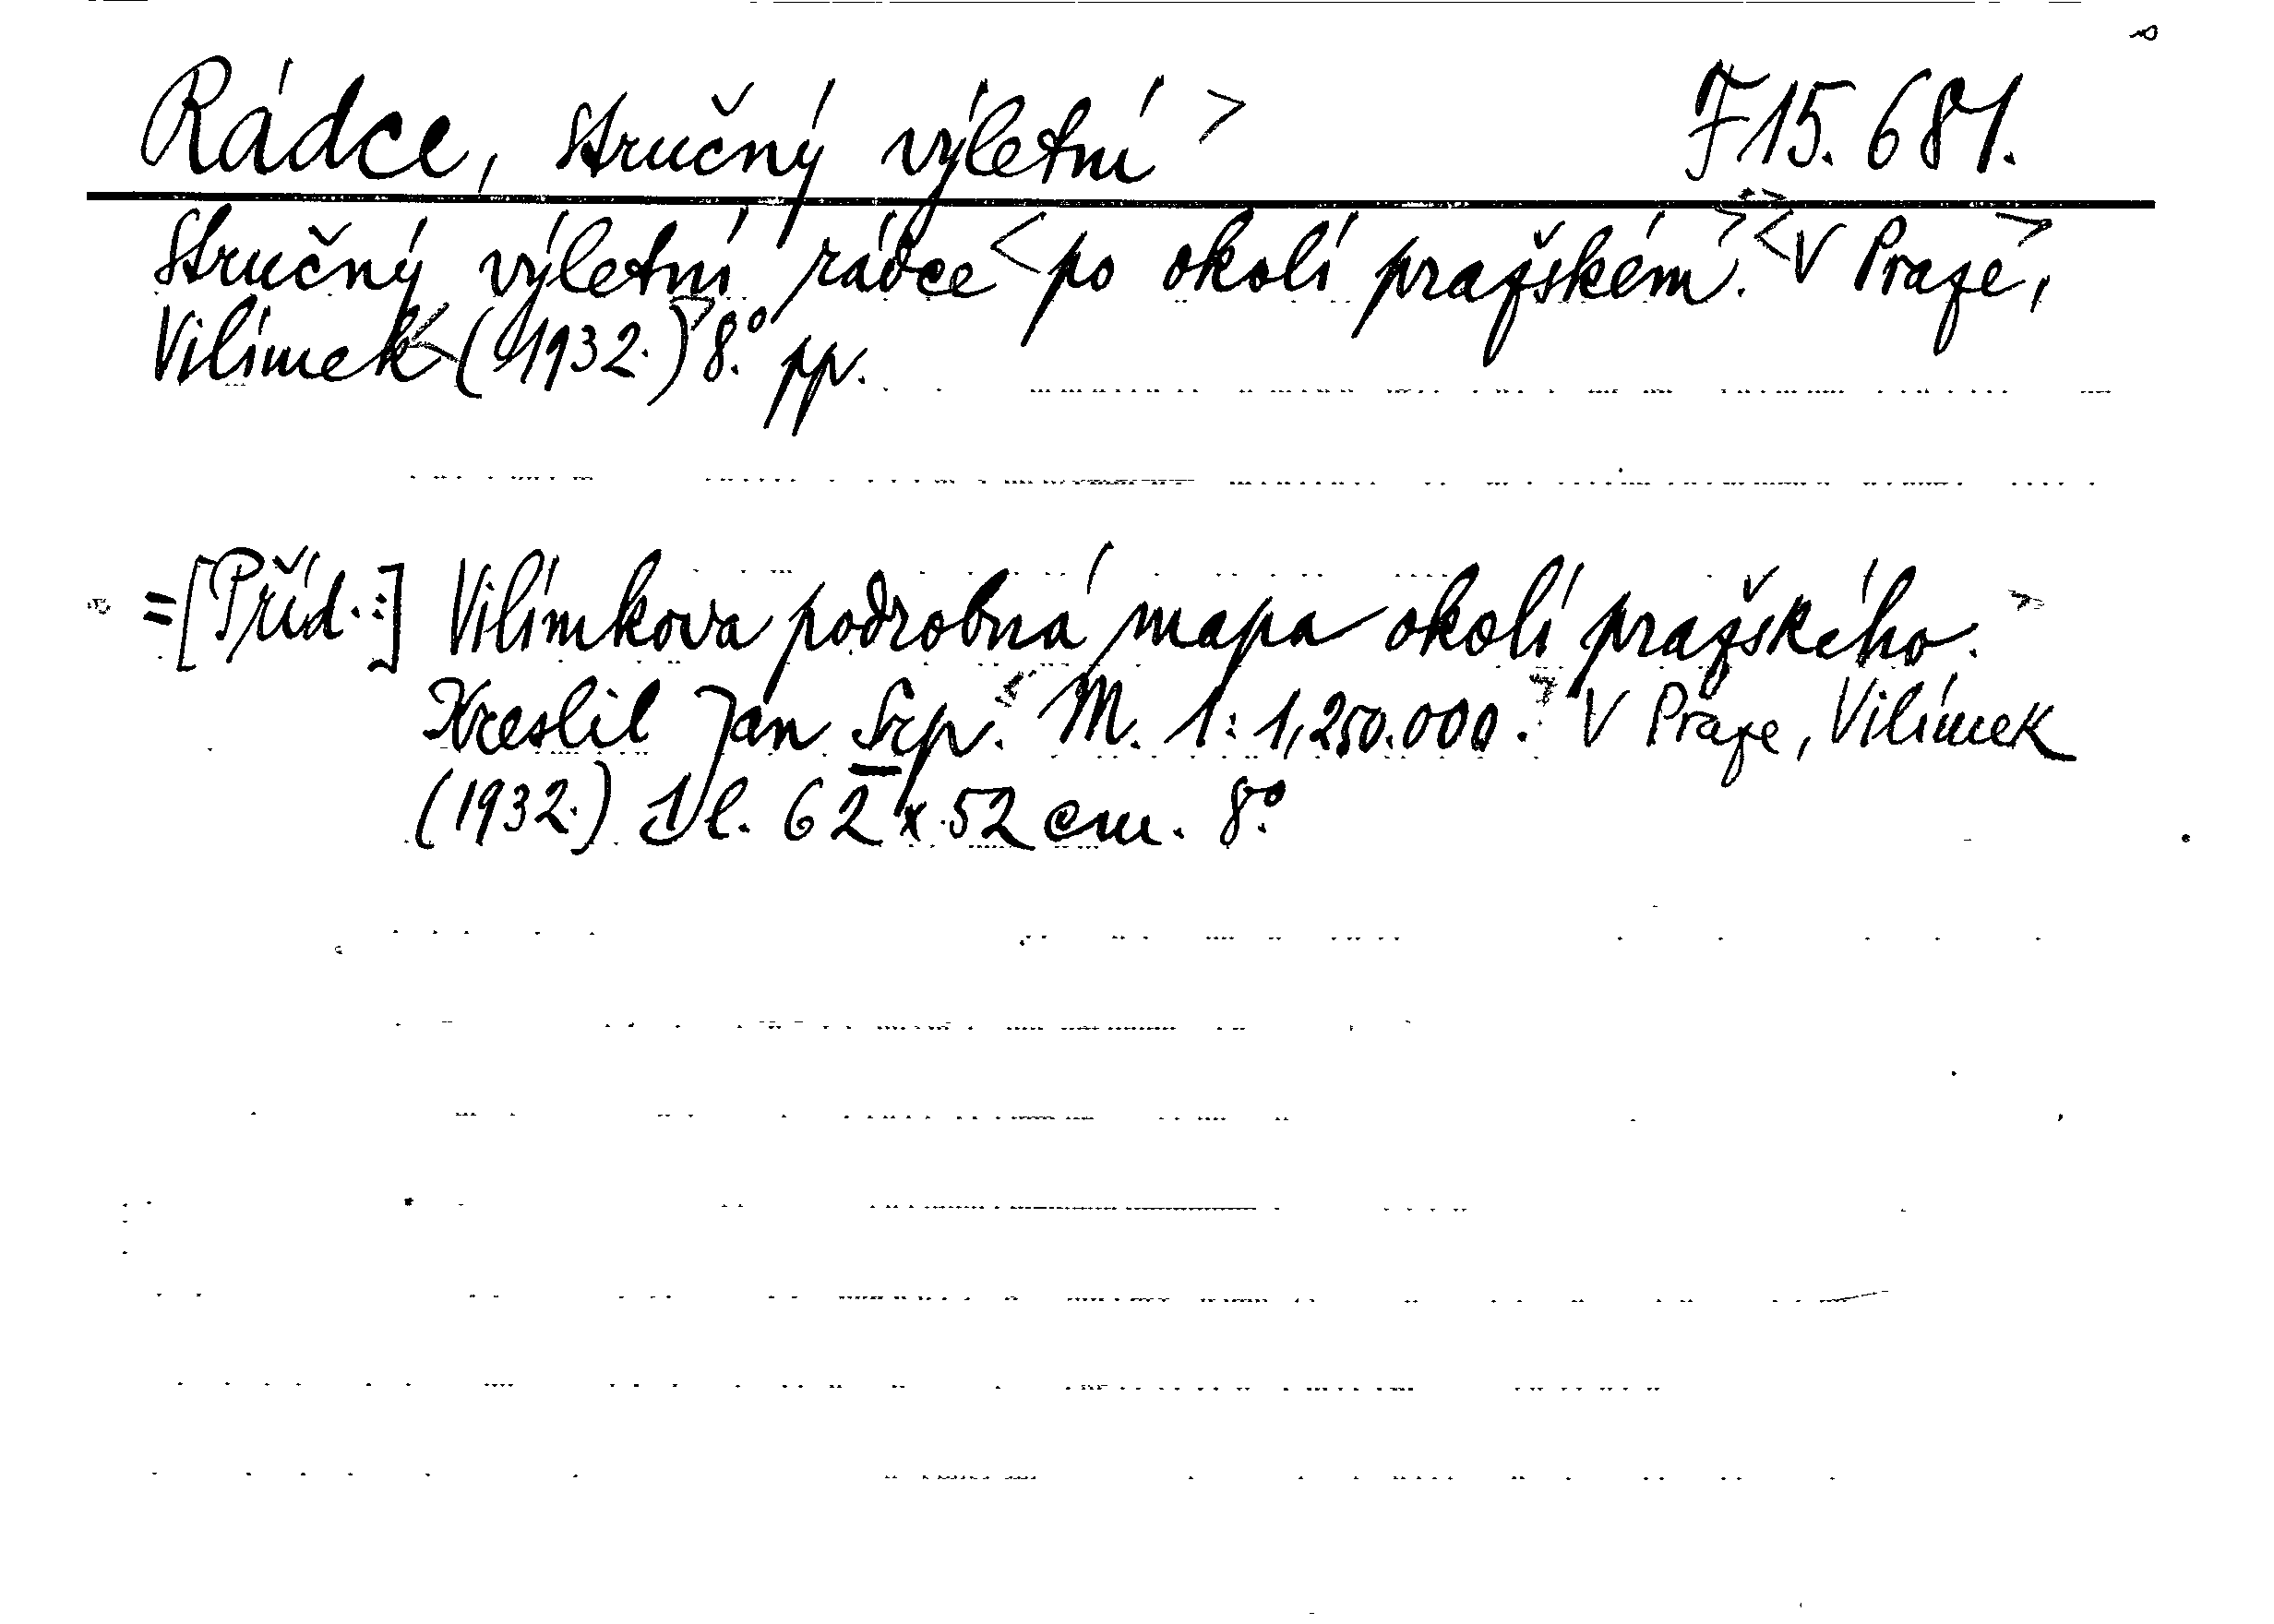 Rádce, stručný výletní > F 15.681.
Stručný výletní rádce < po okolí pražském. > < V Praze, >
Vilímek < (1932.) > 8.° pp.
= [Příd.:] Vilímkova podrobná mapa okolí pražského. >
Kreslil Jan Srp. < M. 1:1,250.000. > V Praze, Vilímek
(1932.) 1 l. 62 x 52 cm. 8.°